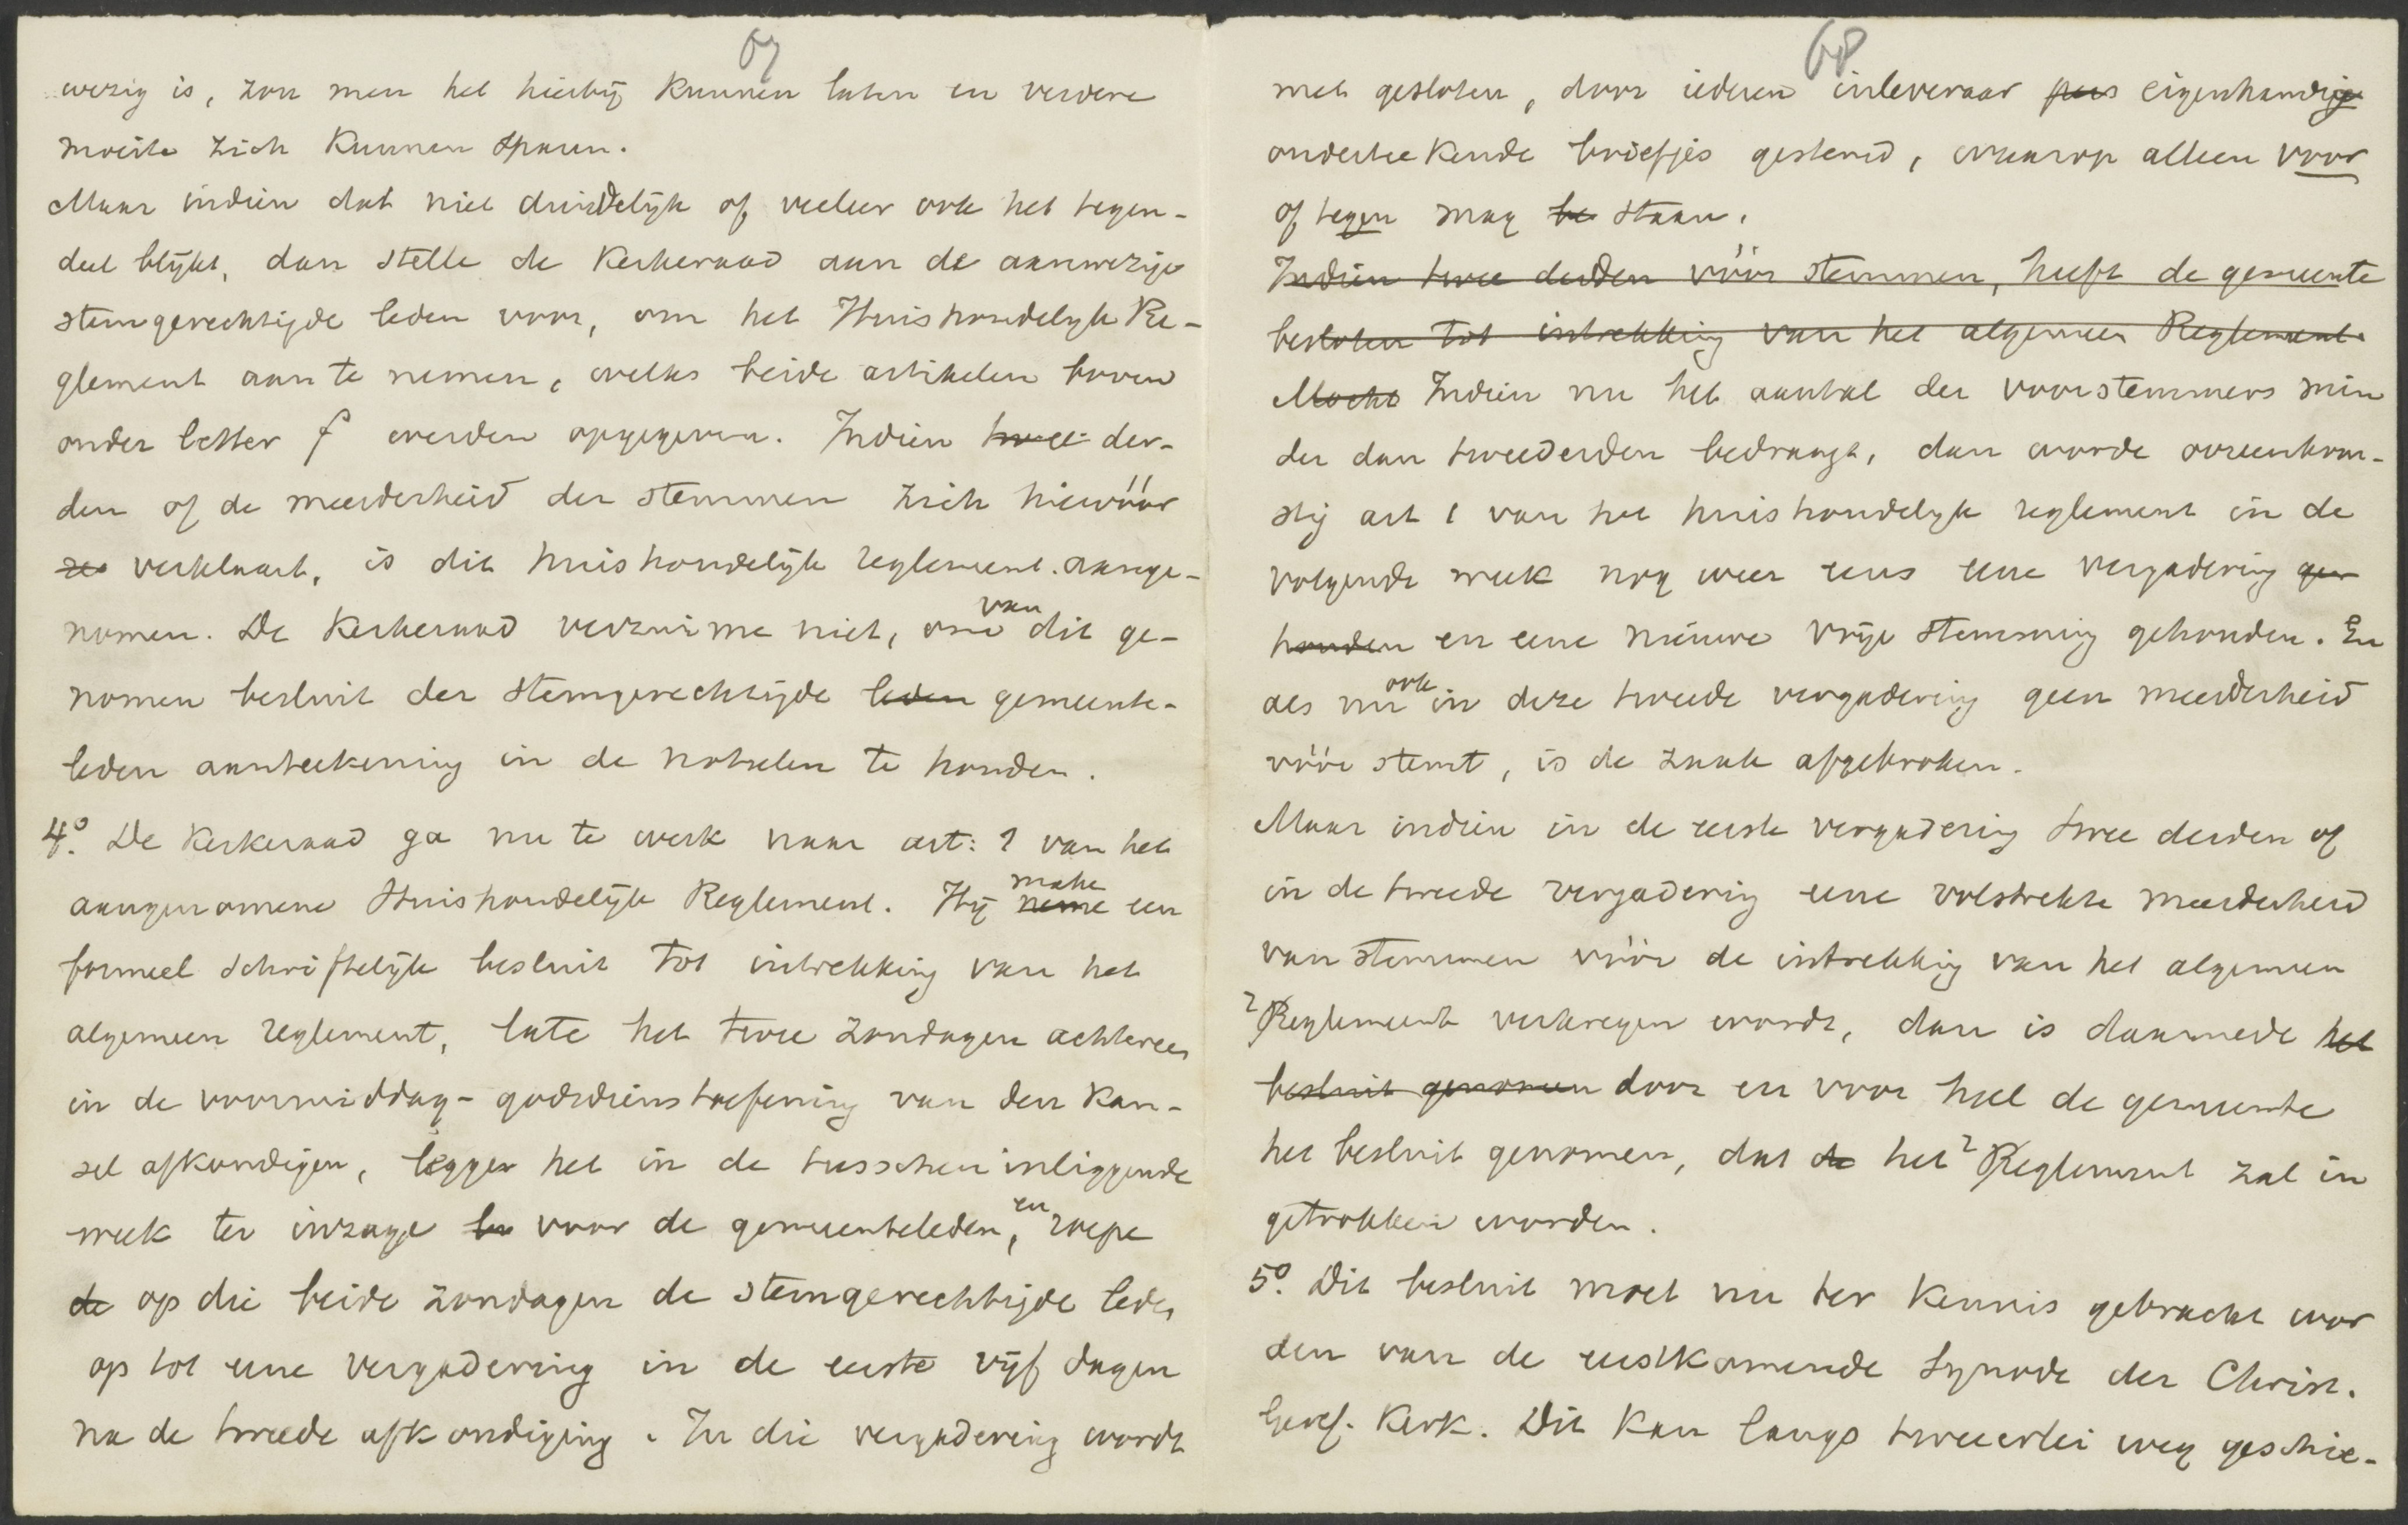 67
wezig is, zou men het hierbij kunnen laten en verdere
moeite zich kunnen sparen.
Maar indien dat niet duidelijk of veeleer ook het tegen-
deel blijkt, dan stelle de Kerkeraad aan de aanwezige
stemgerechtigde leden voor, om het Huishoudelijk Re-
glement aan te nemen, welks beide artikelen boven
onder letter f werden opgegeven. Indien twee der-
den of de meerderheid der stemmen zich hiervóór
ze verklaart, is dit huishoudelijk reglement aange-
nomen. De Kerkeraad verzuime niet, om van dit ge-
nomen besluit der stemgerechtigde leden gemeente-
leden aanteekening in de notulen te houden.
4o. De Kerkeraad ga nu te werk naar art: 1 van het
aangenomene Huishoudelijk Reglement. Hij neme make een
formeel schriftelijk besluit tot intrekking van het
algemeen reglement, late het twee Zondagen achtereen
in de voormiddag-godsdienstoefening van den kan-
sel afkondigen, legge het in de tusschen inliggende
week ter inzage voor de gemeenteleden, en roepe
de op die beide Zondagen de stemgerechtigde leden
op tot eene vergadering in de eerste vijf dagen
na de tweede afkondiging. In die vergadering wordt
68
met gesloten, door iederen inleveraar eigenhandig
onderteekende briefjes gestemd, waarop alleen voor
of tegen mag be staan.
Indien twee derden vóór stemmen, heeft de gemeente
besloten tot intrekking van het algemeen Reglement.
Mocht Indien nu het aantal der voorstemmers min
der dan tweederden bedraagt, dan worde overeenkom-
stig art 1 van het huishoudelijk reglement in de
volgende week nog weer eens eene vergadering ge
houden en eene nieuwe vrije stemming gehouden. En
als nu ook in deze tweede vergadering geen meerderheid
vóór stemt, is de zaak afgebroken.
Maar indien in de eerste vergadering twee derden of
in de tweede vergadering eene volstrekte meerderheid
van stemmen vóór de intrekking van het algemeen
Reglement verkregen wordt, dan is daarmede het
besluit genomen door en voor heel de gemeente
het besluit genomen, dat de het Reglement zal in
getrokken worden.
5o. Dit besluit moet nu ter kennis gebracht wor
den van de eerstkomende Synode der Christ.
Geref. Kerk. Dit kan langs tweeërlei weg geschie-